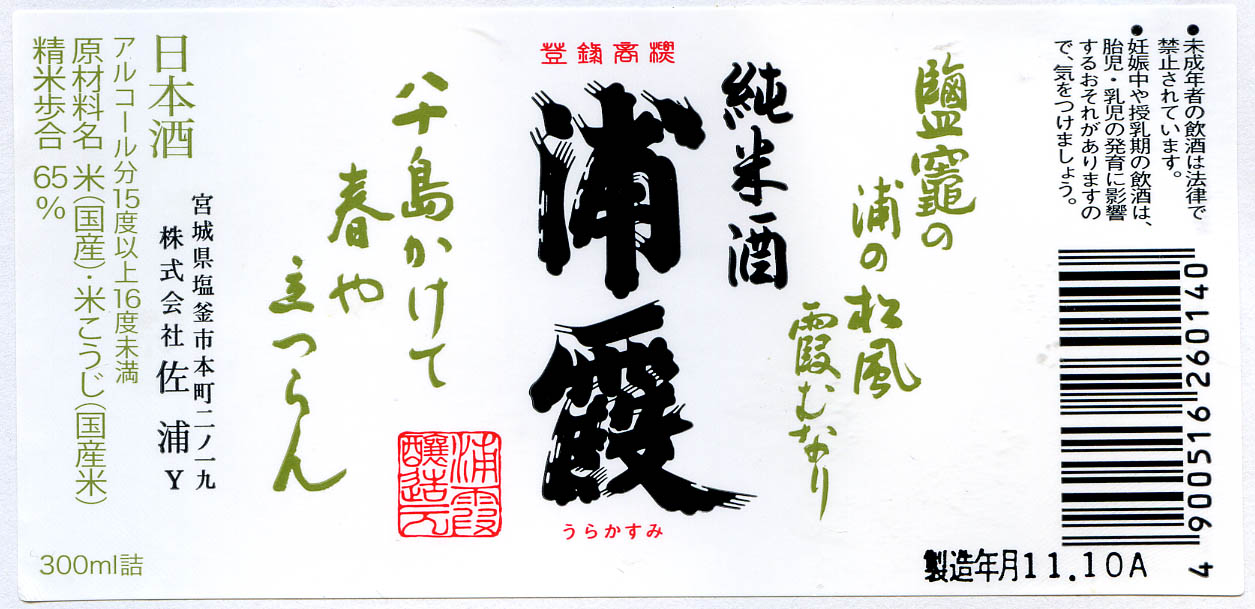 ●未成年者の飲酒は法律で
禁止されています。
●妊娠中や授乳期の飲酒は、
胎児・乳児の発育に影響
するおそれがありますの
で、気をつけましょう。
4 900516 260140
製造年月11.10A
鹽竈の
浦の松風
霞むなり
純米酒
登録商標
浦霞
うらかすみ
八十島かけて
春や
立つらん
浦霞
醸造元
宮城県塩釜市本町二ノ一九
株式会社 佐浦 Y
日本酒
アルコール分15度以上16度未満
原材料名 米(国産)・米こうじ(国産米)
精米歩合 65%
300ml詰